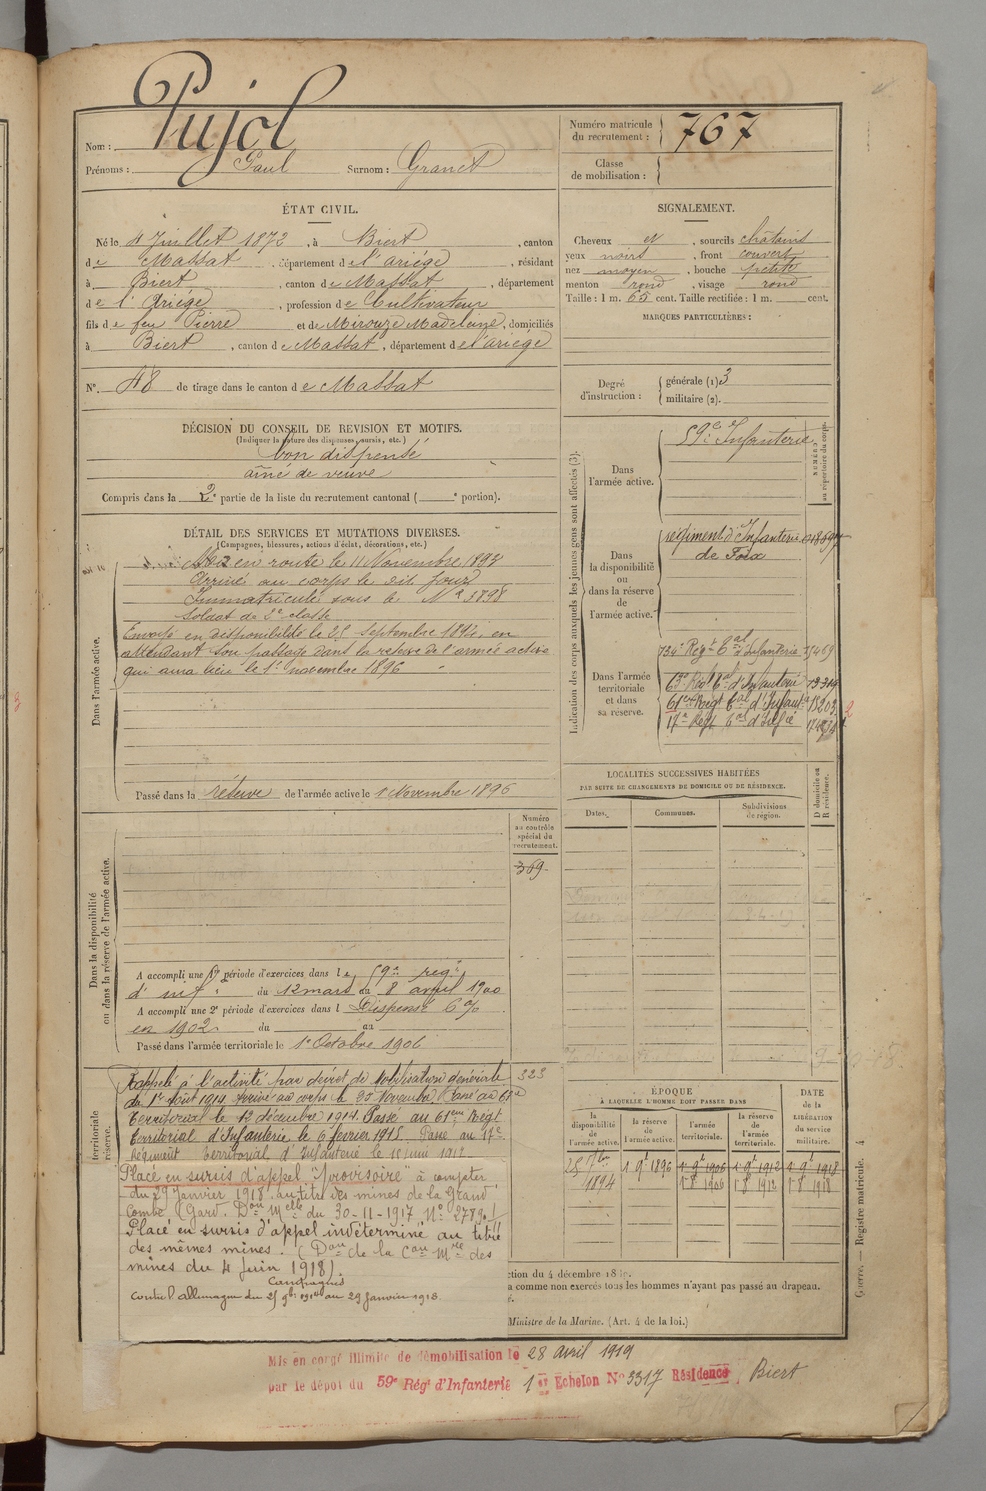 Nom : Pujol
Prénoms : Paul Surnom : Granet
Numéro matricule du recrutement : 767
Classe de mobilisation :
ÉTAT CIVIL.
Né le 4 Juillet 1872, à Biert, canton
de Massat, département de l'ariége, résidant
à Biert, canton de Massat, département
de l'Ariége, profession de Cultivateur
fils de feu Pierre et de Mirouze Madeleine, domiciliés
à Biert, canton de Massat, département de l'ariége
N° 48 de tirage dans le canton de Massat
SIGNALEMENT.
Cheveux et, sourcils châtains
yeux noirs, front couvert
nez moyen, bouche petite
menton rond, visage rond
Taille : 1 m. 65 cent. Taille rectifiée : 1 m. cent.
MARQUES PARTICULIÈRES :
Degré d'instruction : générale (1) 3
militaire (2).
DÉCISION DU CONSEIL DE REVISION ET MOTIFS.
(Indiquer la nature des dispenses, sursis, etc.)
bon dispensé
aîné de veuve
Compris dans la 2e partie de la liste du recrutement cantonal ( e portion).
DÉTAIL DES SERVICES ET MUTATIONS DIVERSES.
(Campagnes, blessures, actions d'éclat, décorations, etc.)
Dans l'armée active.
Mis en route le 11 Novembre 1893
Arrivé au corps le dit jour
Immatriculé sous le No 3898
Soldat de 2e classe
Envoyé en disponibilité le 25 septembre 1894, en
attendant son passage dans la reserve de l'armée active
qui aura lieu le 1er novembre 1896
Passé dans la réserve de l'armée active le 1 Novembre 1896
Indication des corps auxquels les jeunes gens sont affectés (3).
NUMÉRO au répertoire du corps.
Dans l'armée active. 59e d'Infanterie
Dans la disponibilité ou dans la réserve de l'armée active. régiment d'Infanterie
de Foix
Dans l'armée territoriale et dans sa réserve. 134e Régt Tal d'Infanterie
63e Régt Tal d'Infanterie
61e Régt Tal d'Infanterie
17e Régt Tal d'Infie
LOCALITÉS SUCCESSIVES HABITÉES
PAR SUITE DE CHANGEMENTS DE DOMICILE OU DE RÉSIDENCE.
Dates. Communes. Subdivisions de région. D domicile ou R résidence.
Numéro au contrôle spécial du recrutement.
369
Dans la disponibilité ou dans la réserve de l'armée active.
A accompli une 1re période d'exercices dans le 59e régt
d'inf. du 12 mars au 8 avril 1900
A accompli une 2e période d'exercices dans l Dispensé 6 %
en 1902 du au
Passé dans l'armée territoriale le 1er Octobre 1906
territoriale réserve.
323
Rappelé à l'activité par décret de Mobilisation générale
du 1er Août 1914 arrivé au corps le 25 Novembre Passé au 63e
Territorial le 12 décembre 1914. Passé au 61eme Régt
Territorial d'Infanterie le 6 février 1915. Passé au 17e
Régiment Territorial d'Infanterie le
Placé en sursis d'appel "provisoire" à compter
du 29 Janvier 1918 au titre des mines de la Grand
Combe (Gard. Don Melle du 30-11-1917 No 27890)
Placé en sursis d'appel indéterminé au titre
des mêmes mines. (Don de la Con Mre des
mines du 4 Juin 1918).
Campagnes
Contre l'Allemagne du 25 9bre 1914 au 29 Janvier 1918
ÉPOQUE
À LAQUELLE L'HOMME DOIT PASSER DANS
la disponibilité de l'armée active. la réserve de l'armée active. l'armée territoriale. la réserve de l'armée territoriale.
DATE de la LIBÉRATION du service militaire.
25 7bre 1894 1 9e 1896 1 9e 1906 1 9e 1912 1 9e 1918
1 8 1906 1 8 1912 1 8 1918
ction du 4 décembre
a comme non exercés tous les hommes n'ayant pas passé au drapeau.
Ministre de la Marine. (Art. 4 de la loi.)
Guerre. — Registre matricule. 4
Mis en congé illimité de démobilisation le 28 avril 1919
par le dépôt du 59e Régt d'Infanterie 1er Echelon No 3317 Résidence Biert